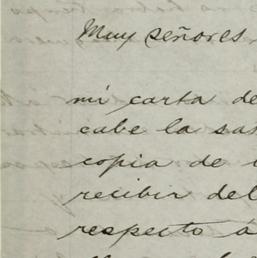 Muy señores
mi carta de
cabe la sa
copia de
recibir del
respecto á